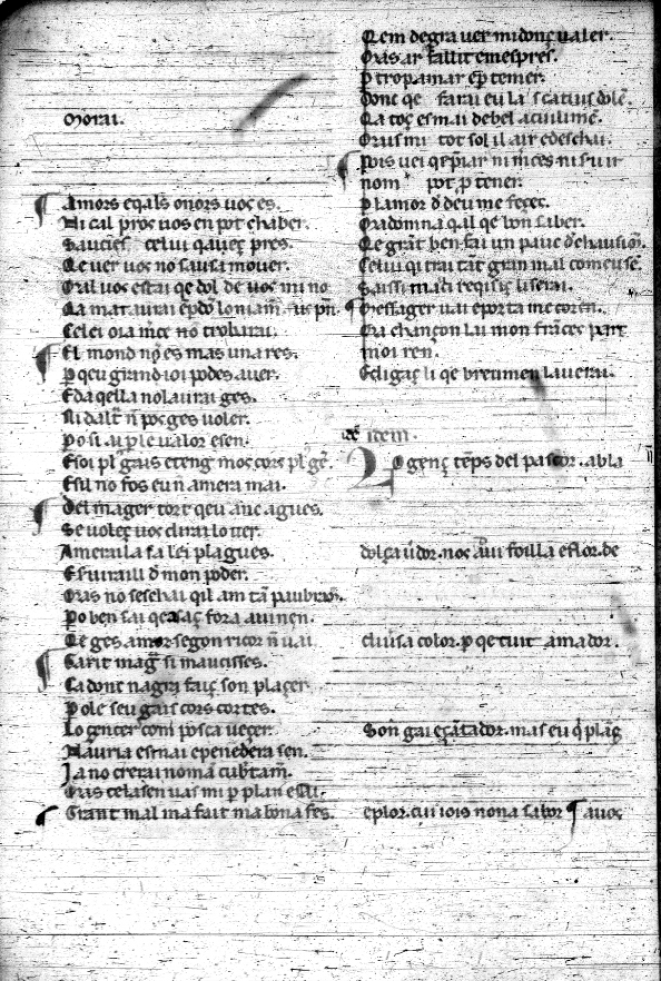 morai.
Amors eqals onors uos es.
Ni cal pros uos en pot chaber.
SauciES celui qaueç pres.
Qe uer uos no sausa mouer.
Oral uos estai qe dol de uos mi no
La mat aurai
Celei oia mce no trobarai.
El mond no es mas una res.
p qeu grand ioi podes auer.
E da qella nol aurai ges.
Ni dalt n pos ges uoler.
Po si ai p le ualor e sen.
E soi pl gais e teng mos cors pl gē.
E sil no fos eu n amera mai.
Del mager tort qeu anc agues.
Se uoleç uos dirai lo uer.
Amerai la fa lei plagues.
E siuraill d mon poder.
Oras no seschai qil am tā paubram.
Po ben sai qe asaç fora auinen.
Qe ges amor segon ricor n uai
Garit magr si maucisses.
Ca donc nagri faiç son plaçer.
Pole seu gais cors cortes.
Lo gencer com posca ueçer.
Nauria esmai e penedera sen.
Ia no crerai nomā cubtam.
Oras cela sen uas mi p plan essai.
Trant mal ma fait ma bona fes.
Qem degra uer midonç ualer.
Oras ar fallit e mespres.
p trop amar e p temer.
Donc qe farai eu las catius dolē.
Ca toç es mai de bel aculimē.
Orais mi tot sol il air e deschai.
Pois uei qe pīar ni mces ni seruir
nom pot p tener.
p lamor d deu me feçes.
Ora domna qal qe bon saber.
Qe grāt ben fai un pauc de chausion.
Celui qi trai tāt gran mal com eu sē.
Saissi madi reqisiç li serai.
Messager uai e porta me coren.
Ma chançon lai mon frāces part
moi ren.
E digaç li qe breumen la uerai.
item.
Lo gens tēps del pascor. ab la
dolça udor. nos adui foill a e flor. de
diuisa color. p qe tuit amador.
Son gai e cātador. mas eu q plāg
e plor. cui iois non a sabor auos